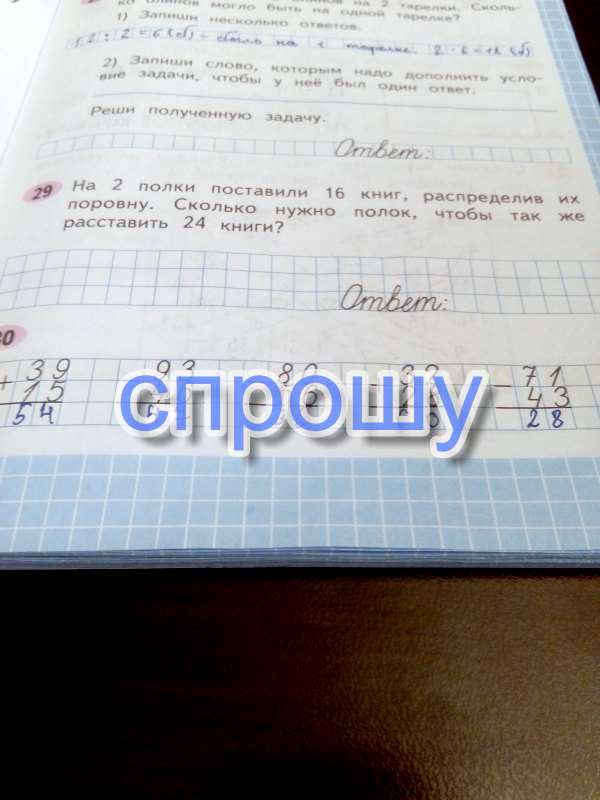 ко блинов могло быть на одной тарелке?
1) Запиши несколько ответов.
12 : 2 = 6 (б) - было на 1 тарелке. 2 · 6 = 12 (б)
2) Запиши слово, которым надо дополнить усло-
вие задачи, чтобы у неё был один ответ.
Реши полученную задачу.
Ответ:
29 На 2 полки поставили 16 книг, распределив их
поровну. Сколько нужно полок, чтобы так же
расставить 24 книги?
Ответ:
39 93 71
+ 15 - 43
54 28
спрошу